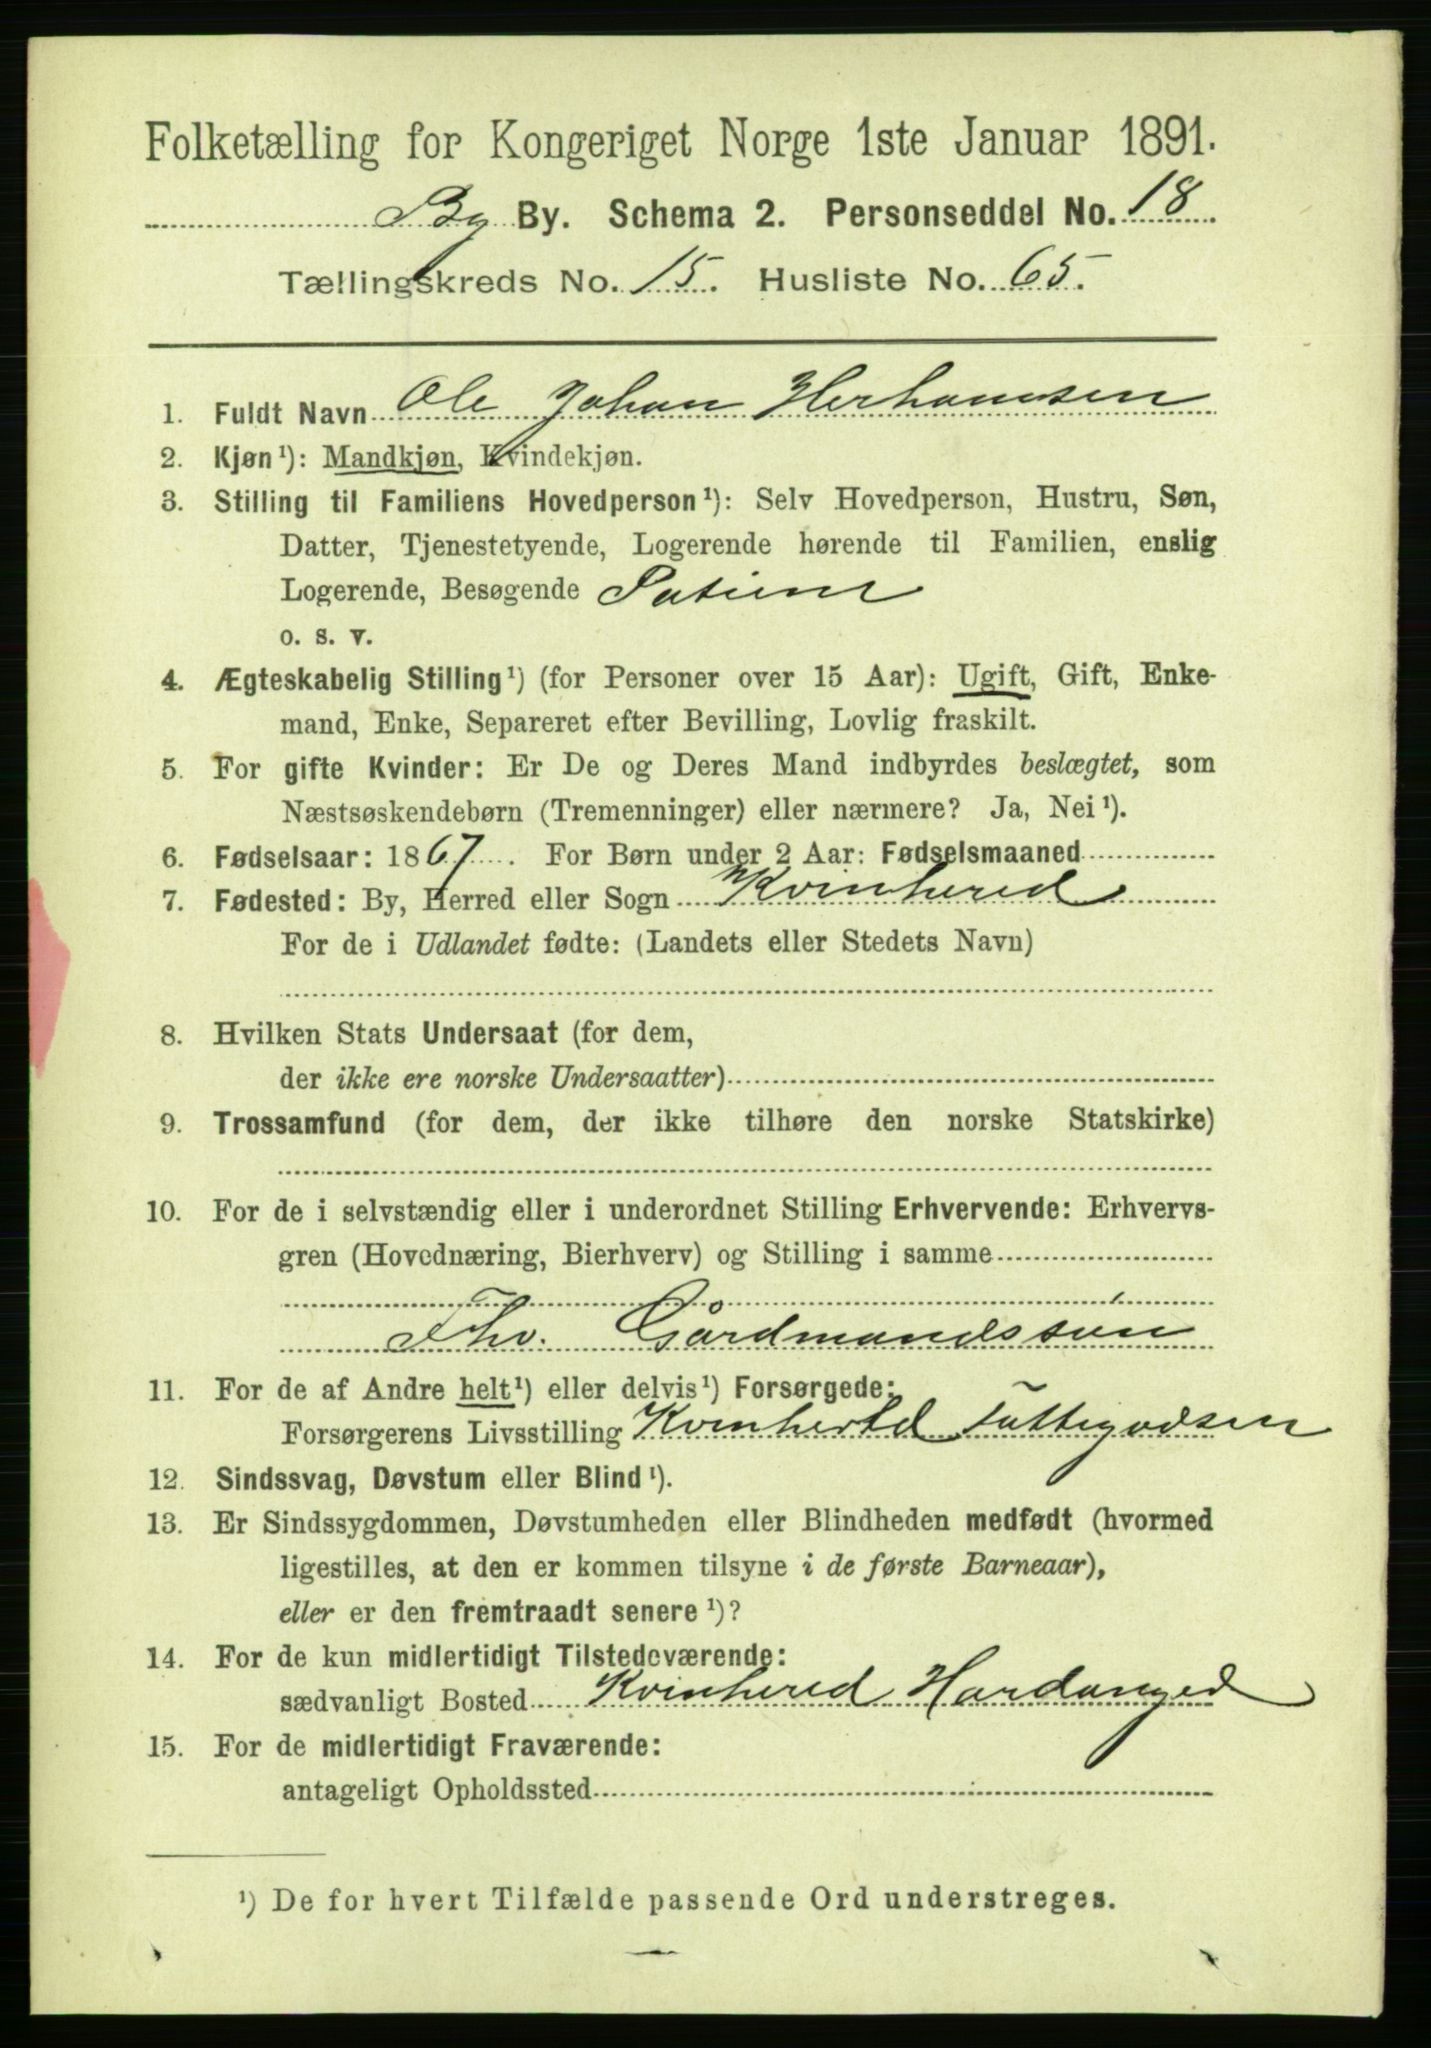 Folketælling for Kongeriget Norge 1ste Januar 1891.
By By. Schema 2. Personseddel No. 18.
Tællingskreds No. 15. Husliste No. 65.
1. Fuldt Navn Ole Johan Herhamsen
2. Kjøn¹): Mandkjøn, Kvindekjøn.
3. Stilling til Familiens Hovedperson¹): Selv Hovedperson, Hustru, Søn,
Datter, Tjenestetyende, Logerende hørende til Familien, enslig
Logerende, Besøgende Patient
o. s. v.
4. Ægteskabelig Stilling¹) (for Personer over 15 Aar): Ugift, Gift, Enke-
mand, Enke, Separeret efter Bevilling, Lovlig fraskilt.
5. For gifte Kvinder: Er De og Deres Mand indbyrdes beslægtet, som
Næstsøskendebørn (Tremenninger) eller nærmere? Ja, Nei¹).
6. Fødselsaar: 1867. For Børn under 2 Aar: Fødselsmaaned
7. Fødested: By, Herred eller Sogn Kvinherred
For de i Udlandet fødte: (Landets eller Stedets Navn)
8. Hvilken Stats Undersaat (for dem,
der ikke ere norske Undersaatter)
9. Trossamfund (for dem, der ikke tilhøre den norske Statskirke)
10. For de i selvstændig eller i underordnet Stilling Erhvervende: Erhvervs-
gren (Hovednæring, Bierhverv) og Stilling i samme
Fhv. Gårdmandssøn
11. For de af Andre helt¹) eller delvis¹) Forsørgede:
Forsørgerens Livsstilling Kvinherred Fattigvæsen
12. Sindssvag, Døvstum eller Blind¹).
13. Er Sindssygdommen, Døvstumheden eller Blindheden medfødt (hvormed
ligestilles, at den er kommen tilsyne i de første Barneaar),
eller er den fremtraadt senere¹)?
14. For de kun midlertidigt Tilstedeværende:
sædvanligt Bosted Kvinherred Hardanger
15. For de midlertidigt Fraværende:
antageligt Opholdssted
¹) De for hvert Tilfælde passende Ord understreges.